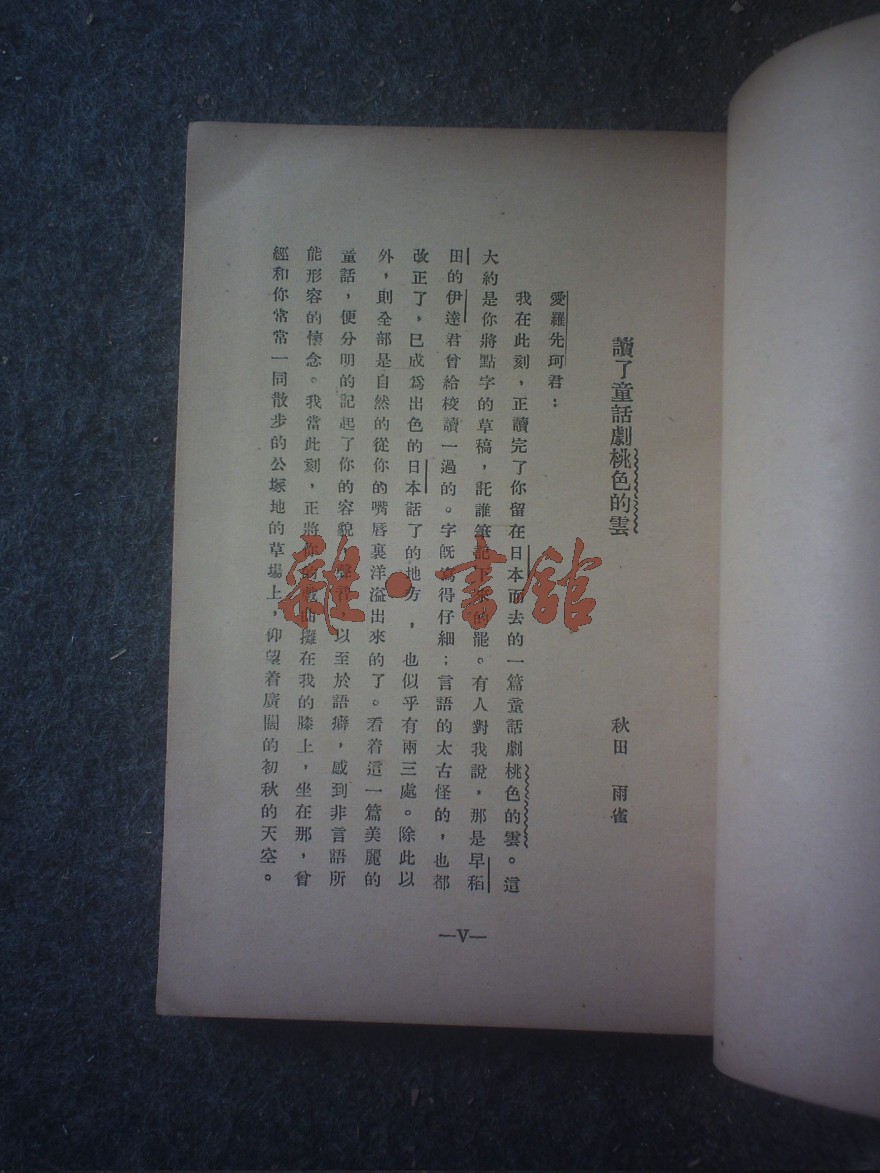 讀了童話劇桃色的雲
秋田　雨雀
愛羅先珂君：
我在此刻，正讀完了你留在日本而去的一篇童話劇桃色的雲。這
大約是你將點字的草稿，託誰筆記下來的罷。有人對我說，那是早稻
田的伊達君曾給校讀一過的。字旣寫得仔細；言語的太古怪的，也都
改正了，已成爲出色的日本話了的地方，也似乎有兩三處。除此以
外，則全部是自然的從你的嘴唇裏洋溢出來的了。看着這一篇美麗的
童話，便分明的記起了你的容貌，聲音，以至於語癖，感到非言語所
能形容的懷念。我當此刻，正將你的戲曲攤在我的膝上，坐在那，曾
經和你常常一同散步的公塚地的草場上，仰望着廣闊的初秋的天空。
—V—
雜·書館